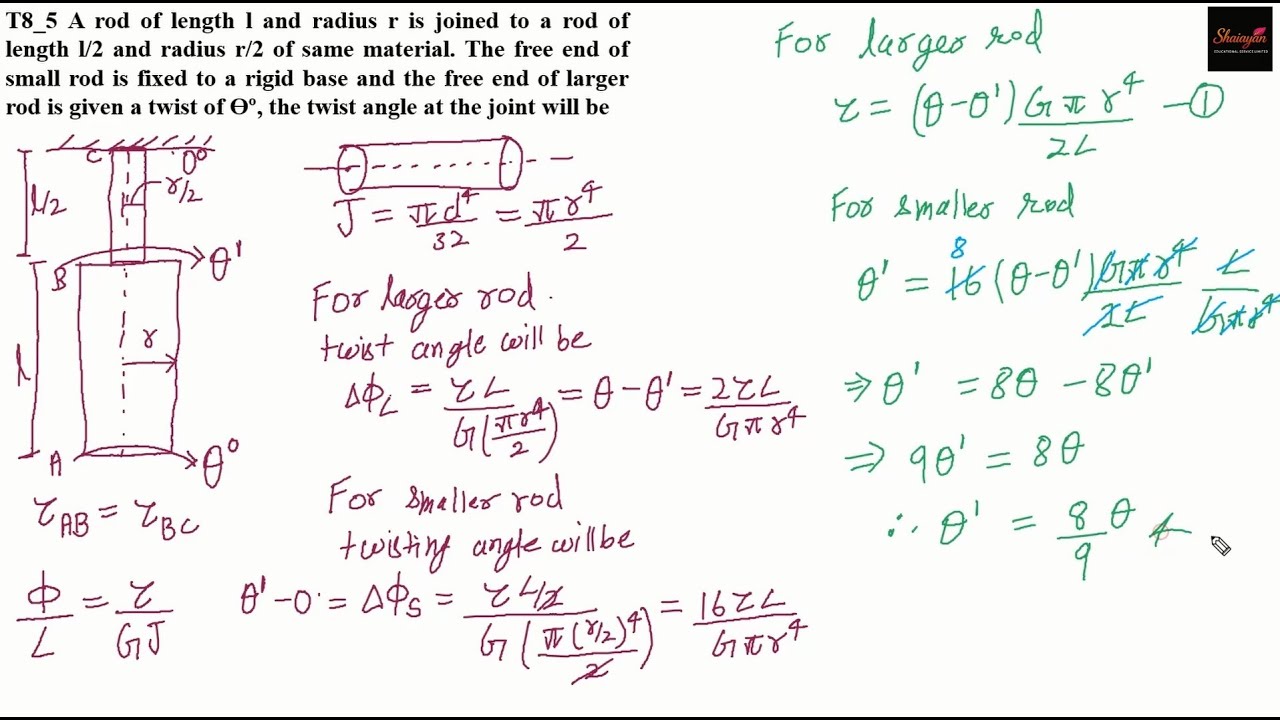 T8_5 A rod of length l and radius r is joined to a rod of
length l/2 and radius r/2 of same material. The free end of
small rod is fixed to a rigid base and the free end of larger
rod is given a twist of ϴº, the twist angle at the joint will be
C 0°
r/2
l/2
B θ'
r
l
A θ°
τ_AB = τ_BC
Φ/L = τ/GJ
J = πd⁴/32 = πr⁴/2
For larger rod.
twist angle will be
ΔΦ_L = τL/G(πr⁴/2) = θ - θ' = 2τL/Gπr⁴
For smaller rod
twisting angle will be
θ' - 0 = ΔΦ_S = τL/2/G(π(r/2)⁴/2) = 16τL/Gπr⁴
For larger rod
τ = (θ-θ') Gπr⁴/2L —①
For smaller rod
8
θ' = 16 (θ-θ') Gπr⁴/2L L/Gπr⁴
⇒ θ' = 8θ - 8θ'
⇒ 9θ' = 8θ
∴ θ' = 8/9 θ
Shaiayan
EDUCATIONAL SERVICE LIMITED